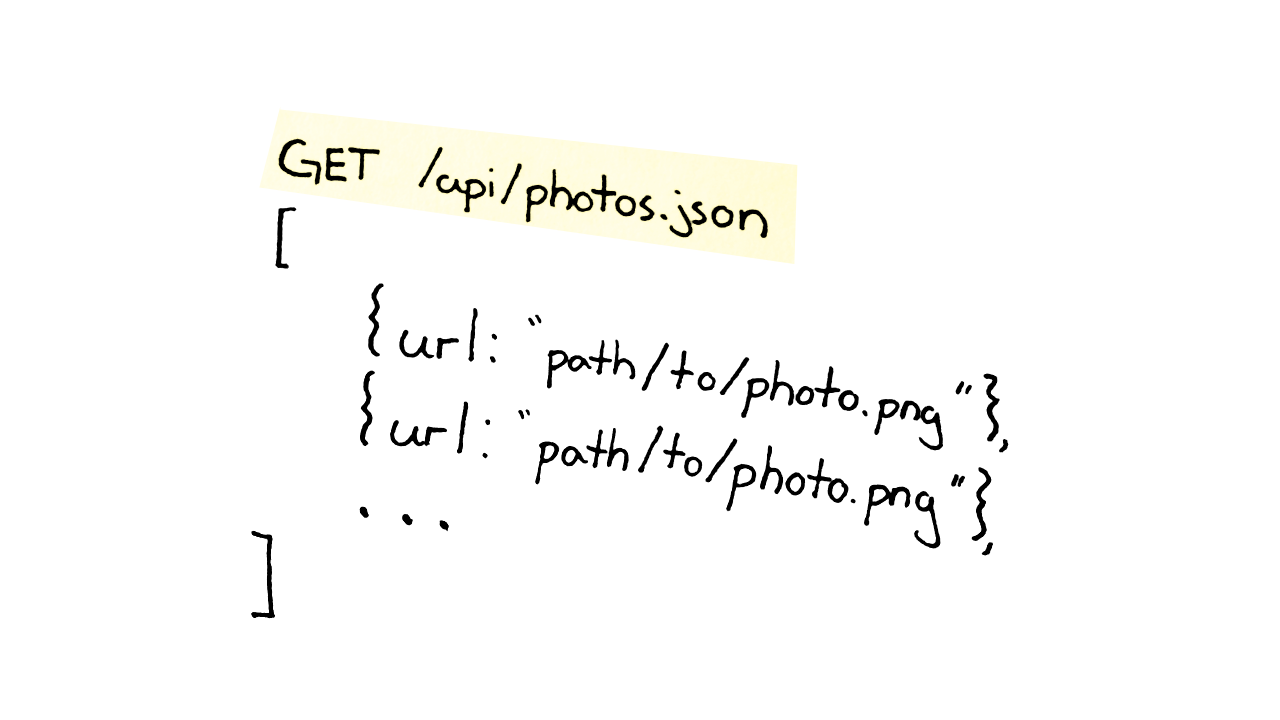 GET /api/photos.json
[
{url: "path/to/photo.png"},
{url: "path/to/photo.png"},
...
]